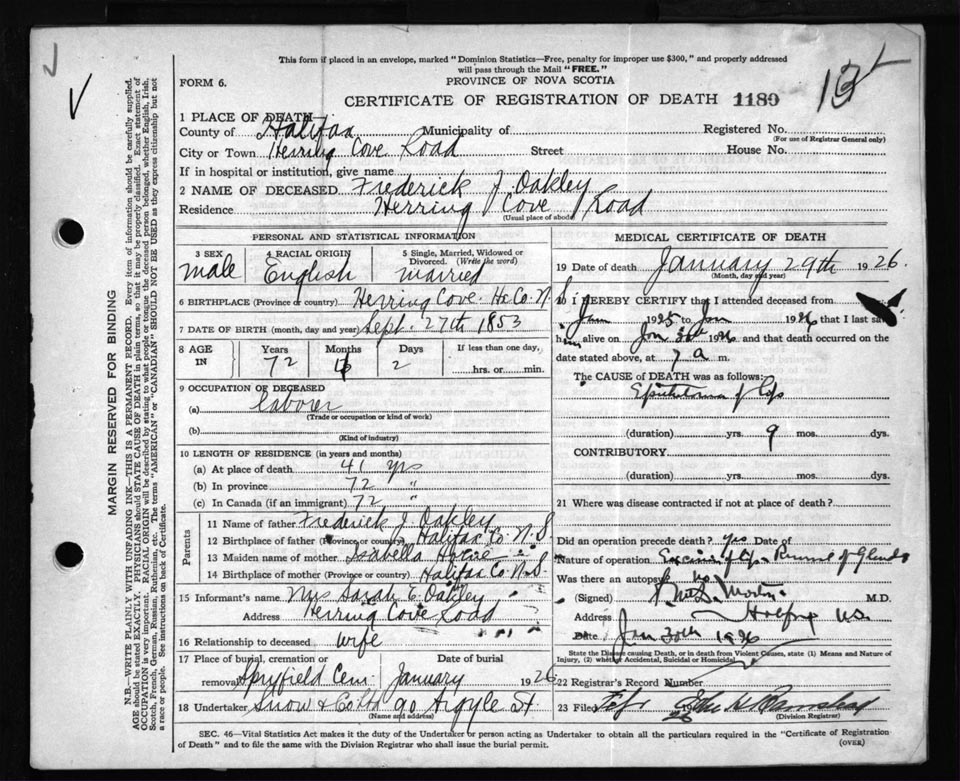 This form if placed in an envelope, marked "Dominion Statistics—Free, penalty for improper use $300," and properly addressed
will pass through the Mail "FREE."
FORM 6.
PROVINCE OF NOVA SCOTIA
CERTIFICATE OF REGISTRATION OF DEATH 1189
1 PLACE OF DEATH
County of Halifax Municipality of Registered No.
(For use of Registrar General only)
City or Town Herring Cove Road Street House No.
If in hospital or institution, give name
2 NAME OF DECEASED Frederick J. Oakley
Residence Herring Cove Road
(Usual place of abode)
PERSONAL AND STATISTICAL INFORMATION
3 SEX
male
4 RACIAL ORIGIN
English
5 Single, Married, Widowed or Divorced. (Write the word)
married
6 BIRTHPLACE (Province or country) Herring Cove. Hx. Co. N.S.
7 DATE OF BIRTH (month, day and year) Sept. 27th 1853
8 AGE IN
Years Months Days If less than one day,
72 2 hrs. or min.
9 OCCUPATION OF DECEASED
(a) laborer
(Trade or occupation or kind of work)
(b)
(Kind of industry)
10 LENGTH OF RESIDENCE (in years and months)
(a) At place of death 41 yrs
(b) In province 72 "
(c) In Canada (if an immigrant) 72 "
Parents
11 Name of father Frederick J. Oakley
12 Birthplace of father (Province or country) Halifax Co. N.S.
13 Maiden name of mother Isabella
14 Birthplace of mother (Province or country) Halifax Co. N.S.
15 Informant's name Mrs Sarah E. Oakley
Address Herring Cove Road
16 Relationship to deceased wife
17 Place of burial, cremation or removal Spryfield Cem. Date of burial January 1926
18 Undertaker Snow & 90 Argyle St.
(Name and address)
MEDICAL CERTIFICATE OF DEATH
19 Date of death January 29th 1926.
(Month, day and year)
20 I HEREBY CERTIFY that I attended deceased from
Jan 1925 to Jan 1926 that I last saw
him alive on Jan 1926 and that death occurred on the
date stated above, at 7 a m.
The CAUSE of DEATH was as follows:
Epithelioma of Lip
(duration) yrs. 9 mos. dys.
CONTRIBUTORY
(duration) yrs. mos. dys.
21 Where was disease contracted if not at place of death?
Did an operation precede death? yes Date of
Nature of operation Excision of Lip. Removal of Glands
Was there an autopsy? no
(Signed) M.D.
Address Halifax N.S.
Date Jan 30th 1926
State the Disease causing Death, or in death from Violent Causes, state (1) Means and Nature of Injury, (2) whether Accidental, Suicidal or Homicidal.
22 Registrar's Record Number
23 Filed
(Division Registrar)
SEC. 46—Vital Statistics Act makes it the duty of the Undertaker or person acting as Undertaker to obtain all the particulars required in the "Certificate of Registration
of Death" and to file the same with the Division Registrar who shall issue the burial permit.
(OVER)
MARGIN RESERVED FOR BINDING
N.B.—WRITE PLAINLY WITH UNFADING INK—THIS IS A PERMANENT RECORD. Every item of information should be carefully supplied.
AGE should be stated EXACTLY. PHYSICIANS should STATE CAUSE OF DEATH in plain terms, so that it may be properly classified. Exact statement of
OCCUPATION is very important. RACIAL ORIGIN will be described by stating to what people or tongue the deceased person belonged, whether English, Irish,
Scotch, French, German, Russian, Ruthenian, etc. The terms "AMERICAN" or "CANADIAN" SHOULD NOT BE USED as they express citizenship but not
a race or people. See instructions on back of Certificate.